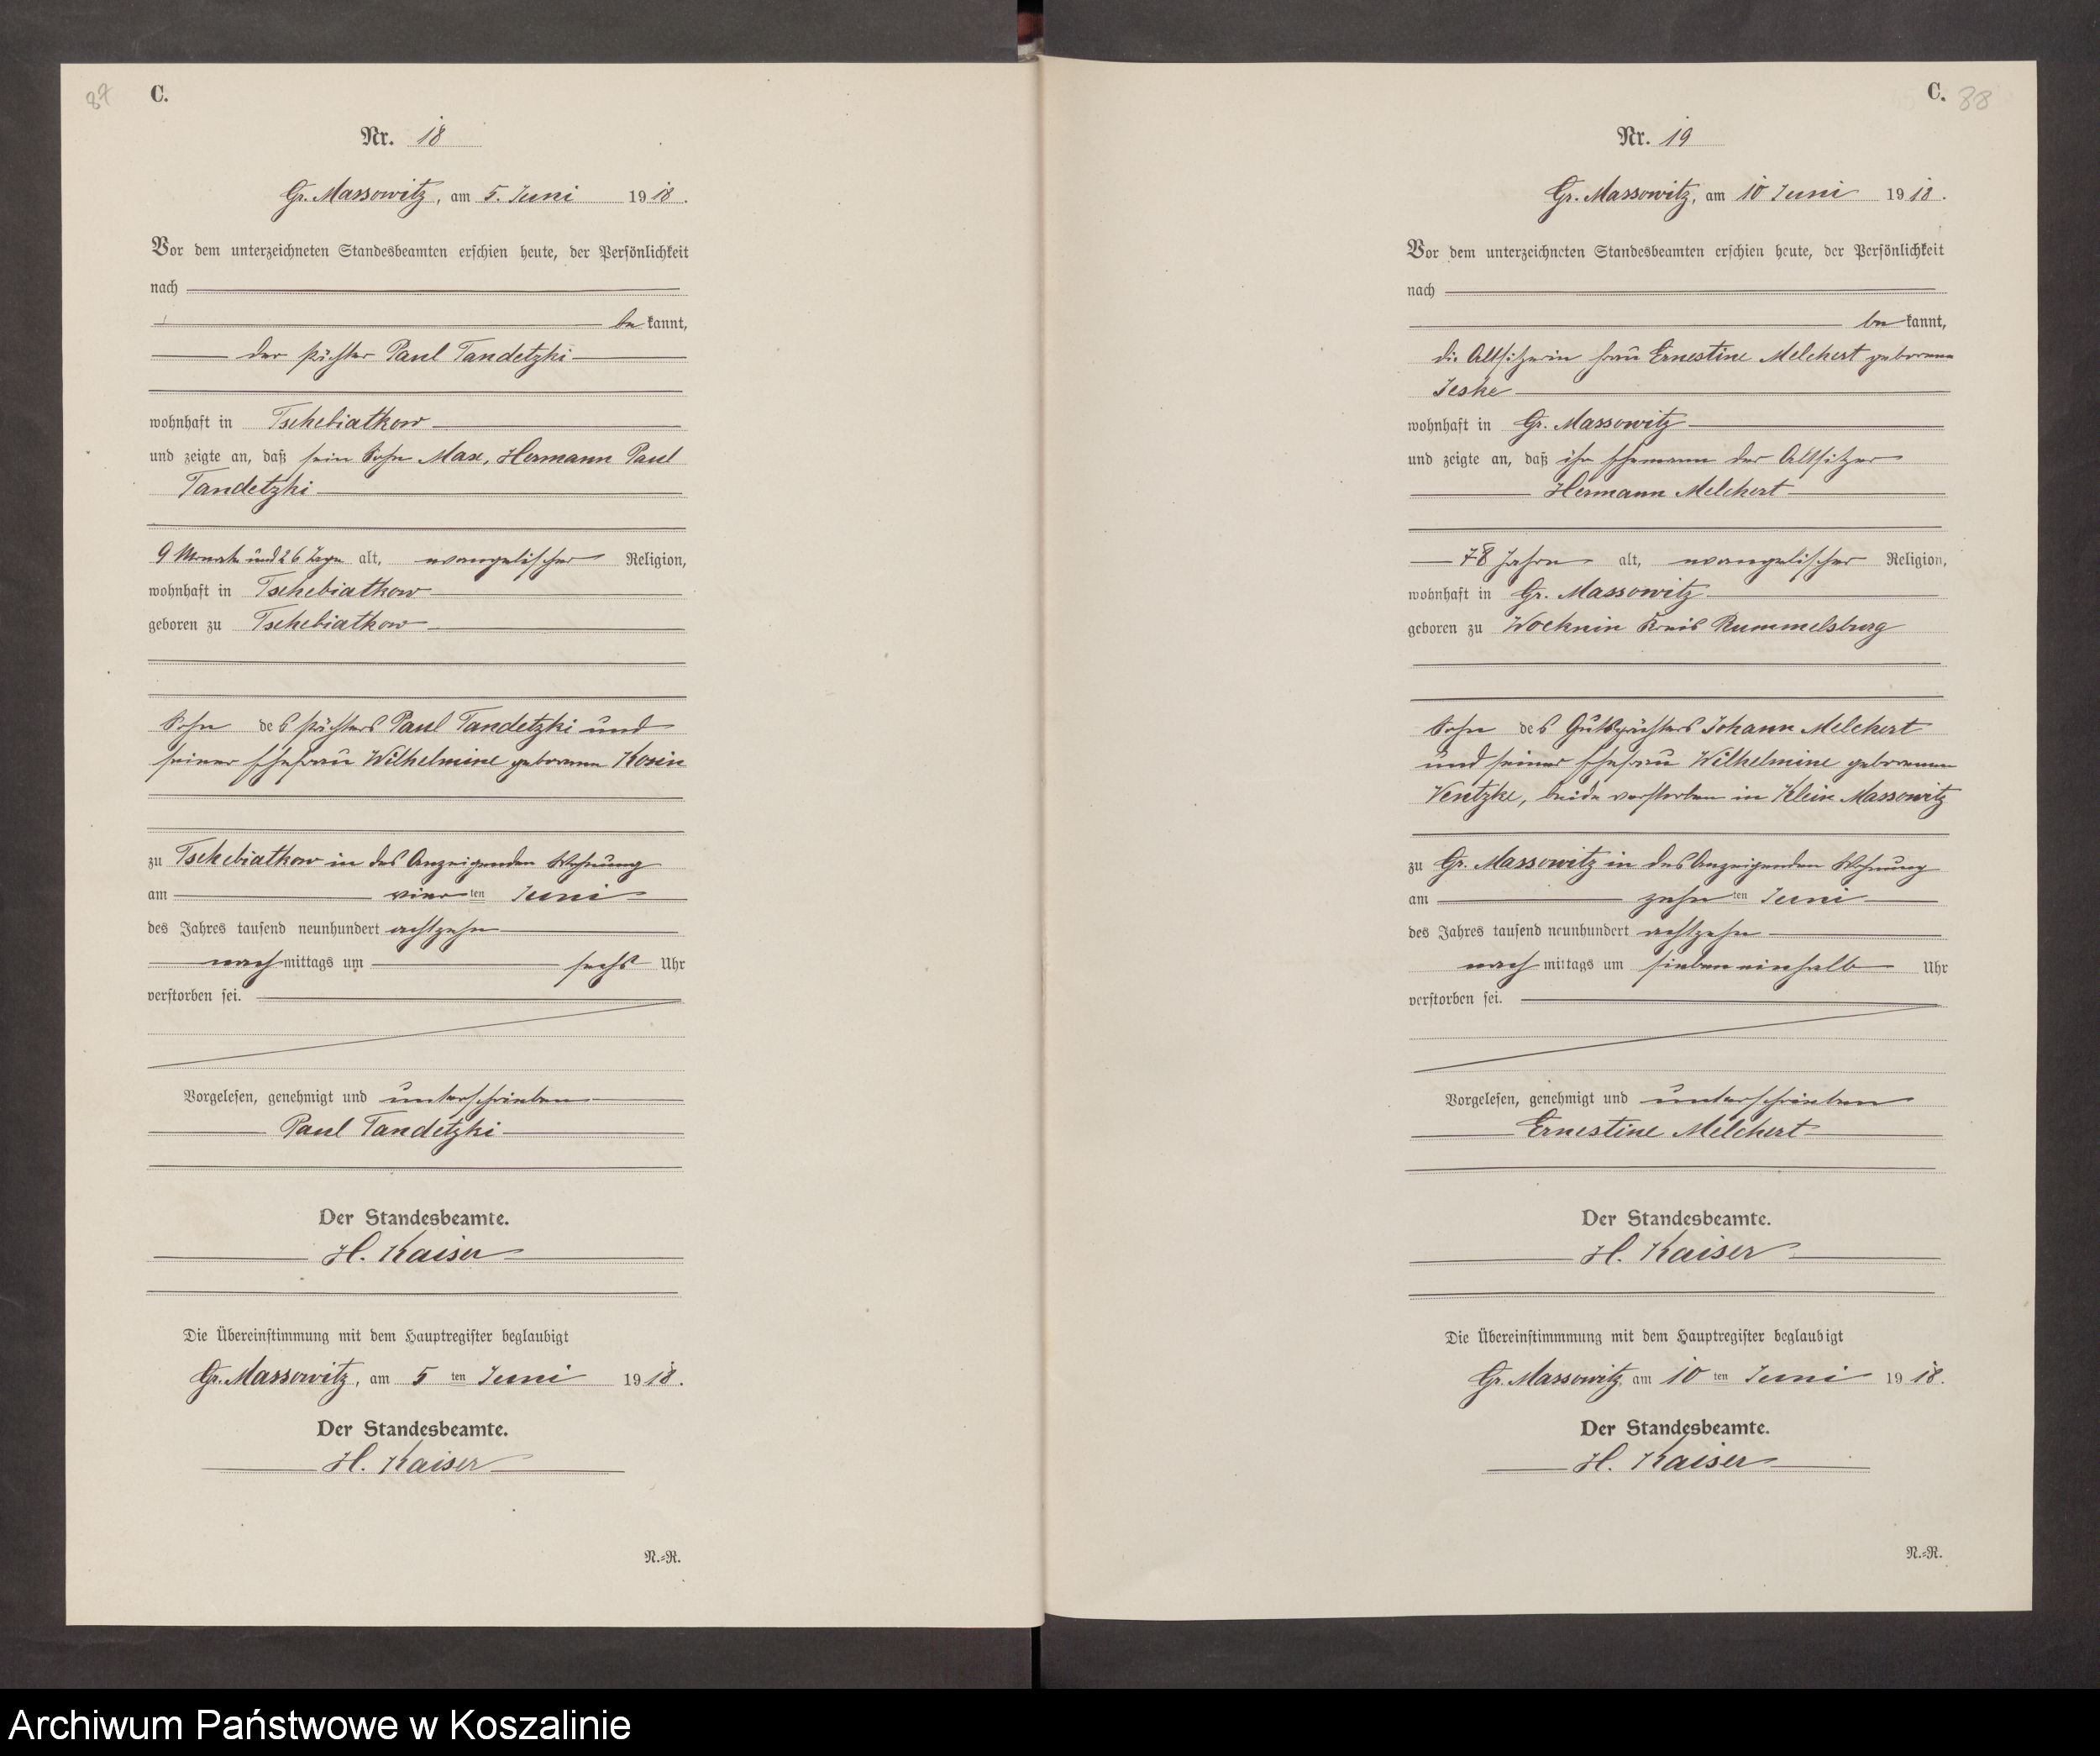 87
C.
Nr. 18
Gr. Massowitz, am 5. Juni 1918.
Vor dem unterzeichneten Standesbeamten erschien heute, der Persönlichkeit
nach
be kannt,
der Pächter Paul Tandetzki
wohnhaft in Tschebiatkow
und zeigte an, daß sein Sohn Max, Hermann Paul
Tandetzki
9 Monate und 26 Tage alt, evangelischer Religion,
wohnhaft in Tschebiatkow
geboren zu Tschebiatkow
Sohn des Pächters Paul Tandetzki und
seiner Ehefrau Wilhelmine geborenen Kosin
zu Tschebiatkow in des Anzeigenden Wohnung
am vier ten Juni
des Jahres tausend neunhundert achtzehn
nach mittags um sechs Uhr
verstorben sei.
Vorgelesen, genehmigt und unterschrieben
Paul Tandetzki
Der Standesbeamte.
H. Kaiser
Die Übereinstimmung mit dem Hauptregister beglaubigt
Gr. Massowitz, am 5 ten Juni 1918.
Der Standesbeamte.
H. Kaiser
N.=R.
C. 88
Nr. 19
Gr. Massowitz, am 10 Juni 1918.
Vor dem unterzeichneten Standesbeamten erschien heute, der Persönlichkeit
nach
be kannt,
die Altsitzerin Frau Ernestine Melchert geborene
Jeske
wohnhaft in Gr. Massowitz
und zeigte an, daß ihr Ehemann der Altsitzer
Hermann Melchert
78 Jahre alt, evangelischer Religion,
wohnhaft in Gr. Massowitz
geboren zu Wocknin Kreis Rummelsburg
Sohn des Gutspächters Johann Melchert
und seiner Ehefrau Wilhelmine geborenen
Ventzke, beide verstorben in Klein Massowitz
zu Gr. Massowitz in des Anzeigenden Wohnung
am zehn ten Juni
des Jahres tausend neunhundert achtzehn
nach mittags um siebeneinhalb Uhr
verstorben sei.
Vorgelesen, genehmigt und unterschrieben
Ernestine Melchert
Der Standesbeamte.
H. Kaiser
Die Übereinstimmmung mit dem Hauptregister beglaubigt
Gr. Massowitz, am 10 ten Juni 1918.
Der Standesbeamte.
H. Kaiser
N.=R.
Archiwum Państwowe w Koszalinie